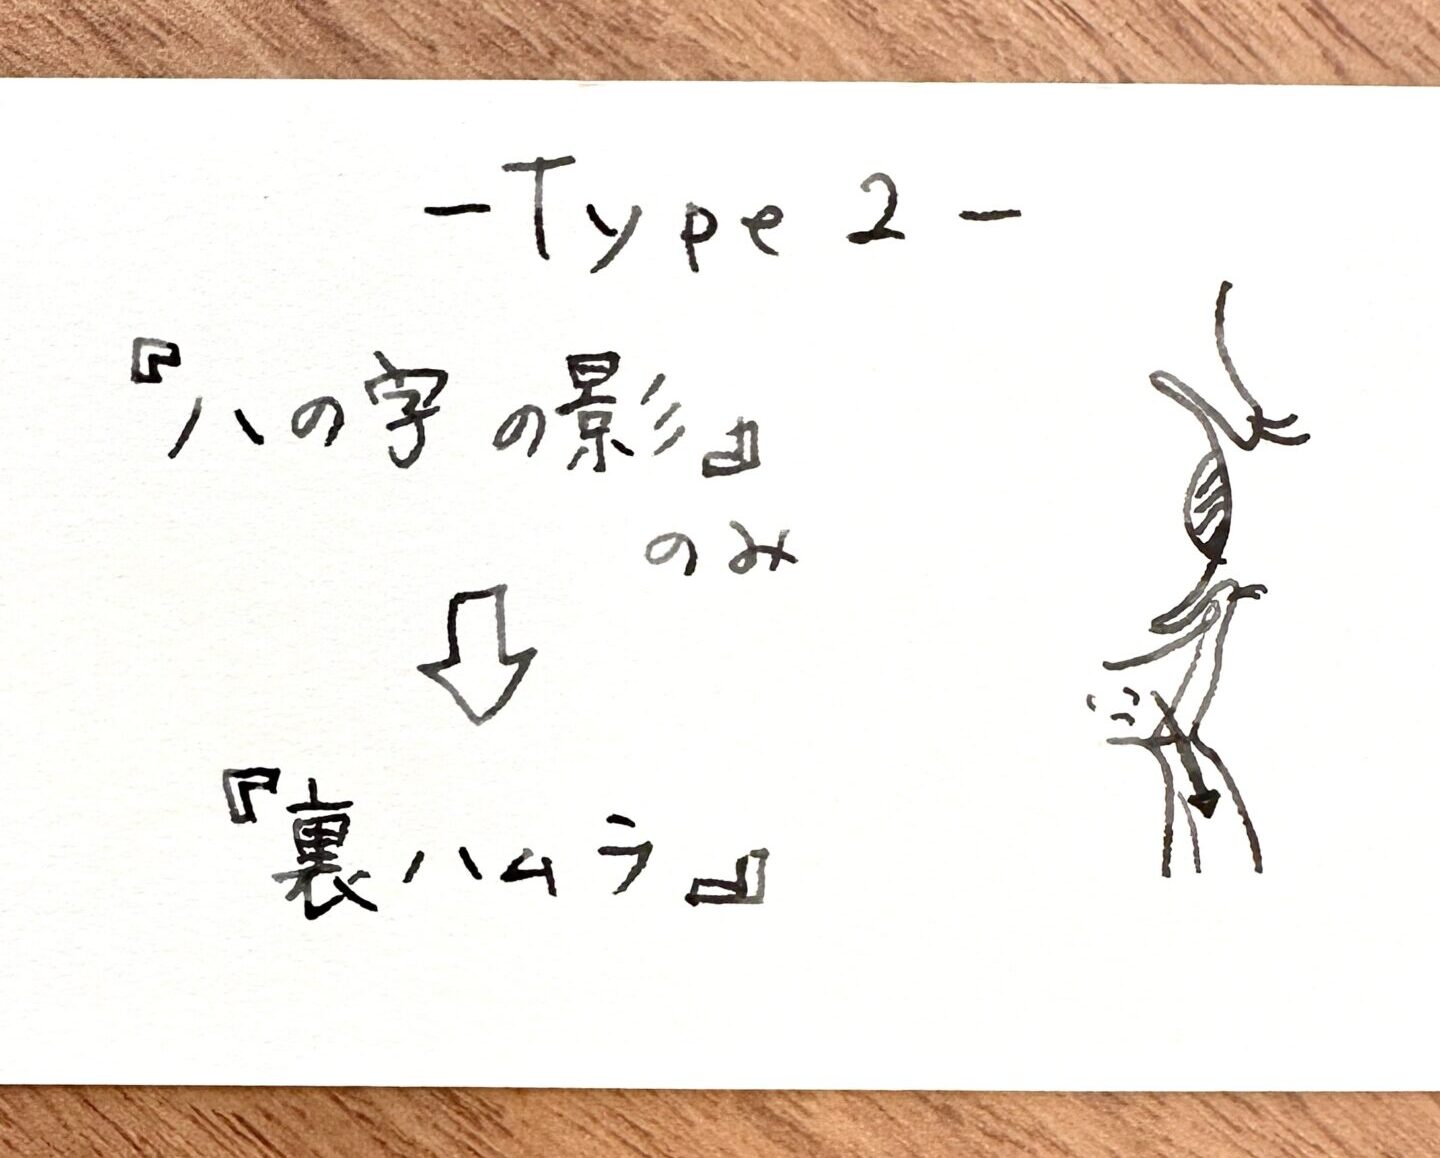 -Type 2-
『ハの字の影』
のみ
『裏ハムラ』